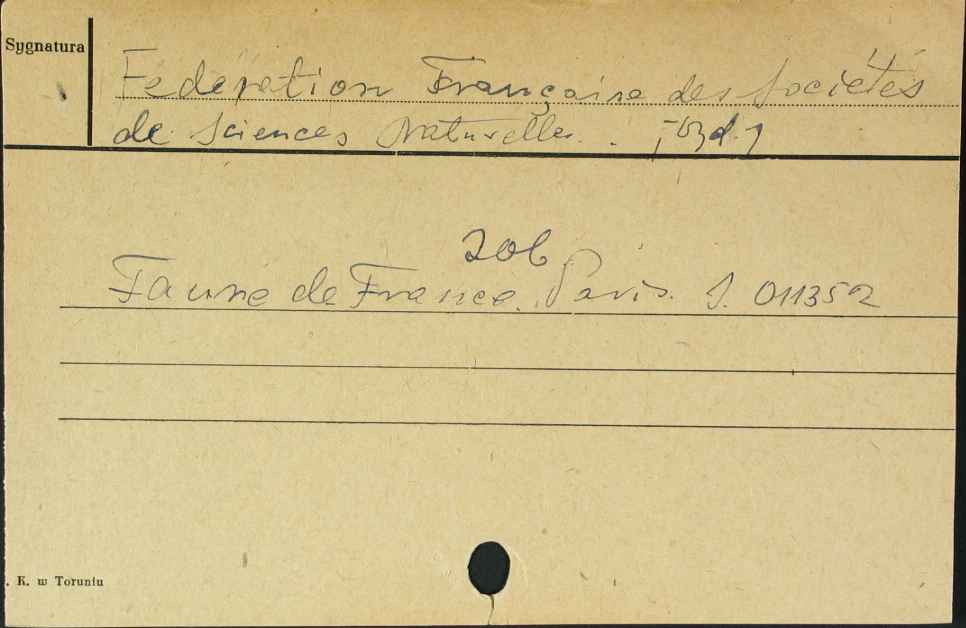 Sygnatura
Féderation Française des Sociétés
de Sciences Naturelles.
zob
Faune de France. Paris. S. 011352
. K. w Toruniu